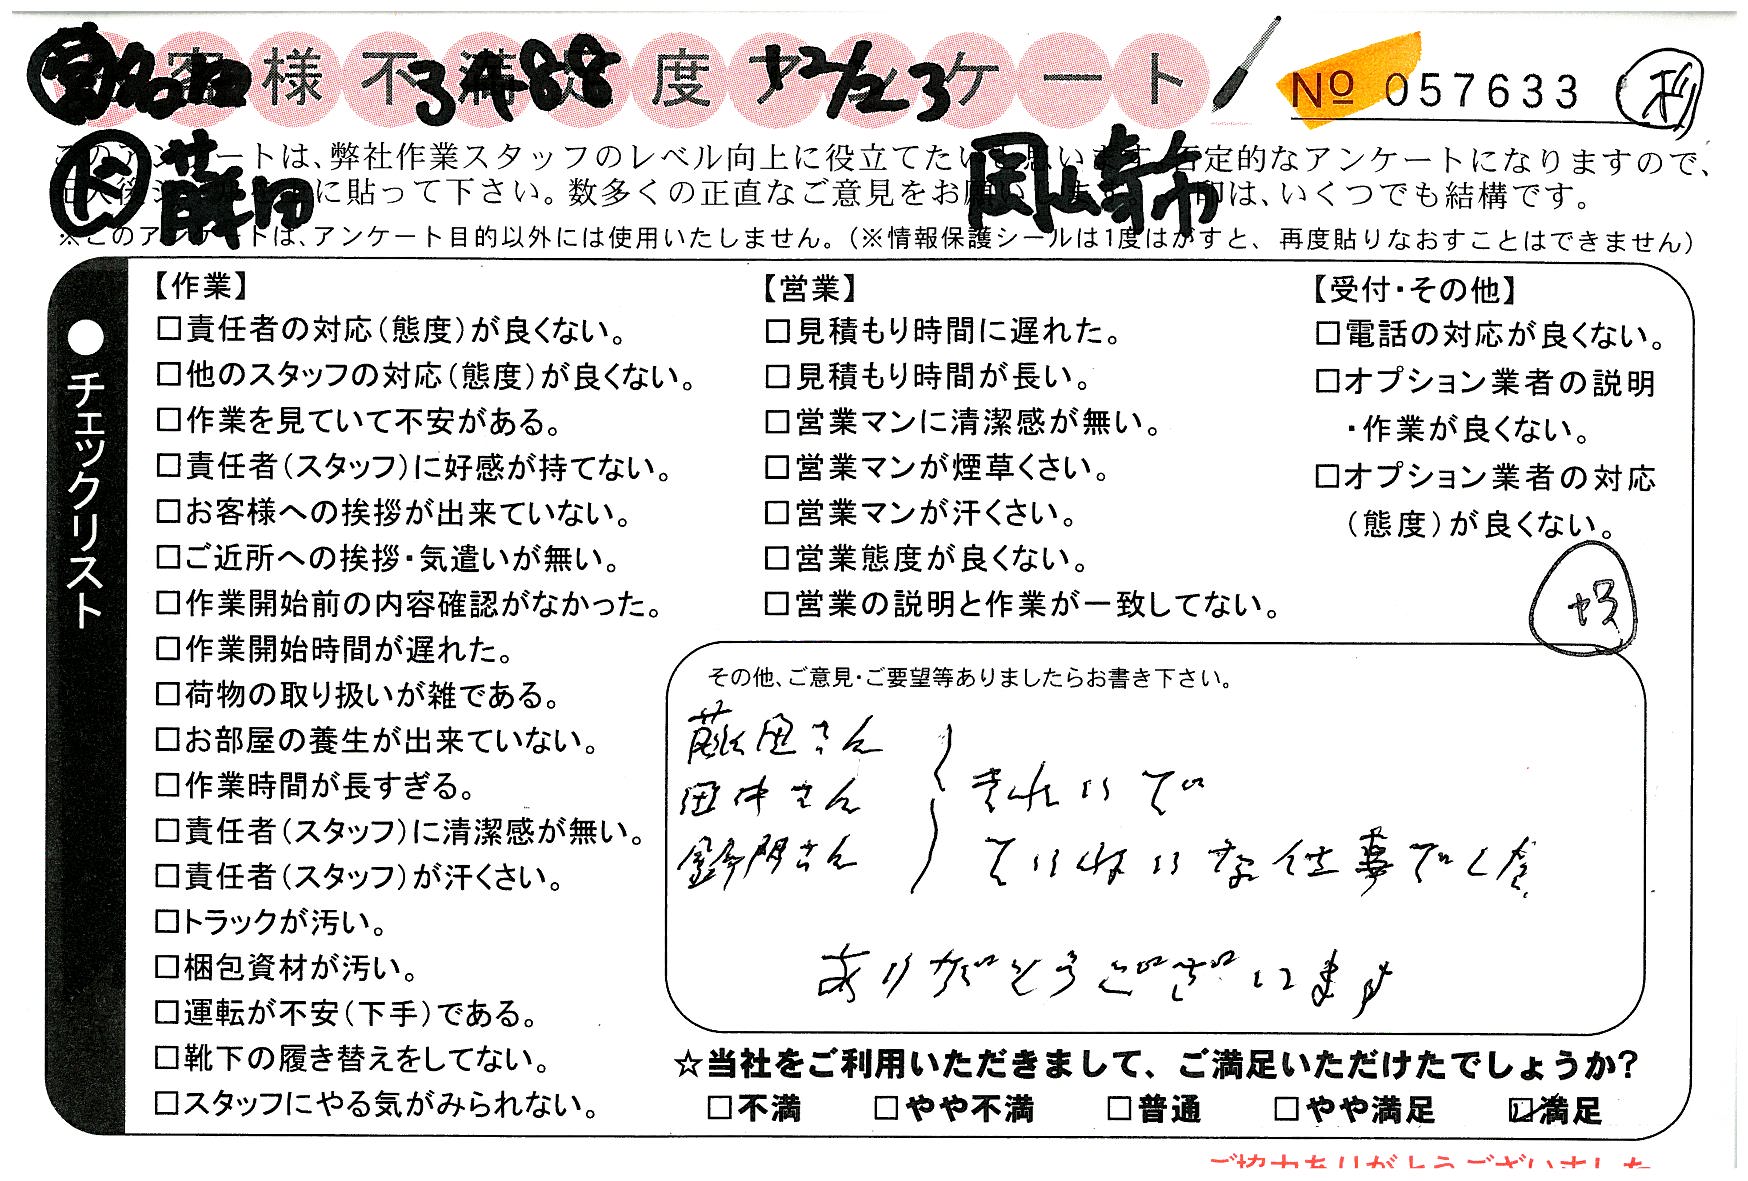 お客様不満足度アンケート
№ 057633
このアンケートは、弊社作業スタッフのレベル向上に役立てたいと思います。否定的なアンケートになりますので、
に貼って下さい。数多くの正直なご意見をお願い
印は、いくつでも結構です。
藤田
岡崎市
※このアンケートは、アンケート目的以外には使用いたしません。（※情報保護シールは1度はがすと、再度貼りなおすことはできません）
●チェックリスト
【作業】
□責任者の対応（態度）が良くない。
□他のスタッフの対応（態度）が良くない。
□作業を見ていて不安がある。
□責任者（スタッフ）に好感が持てない。
□お客様への挨拶が出来ていない。
□ご近所への挨拶・気遣いが無い。
□作業開始前の内容確認がなかった。
□作業開始時間が遅れた。
□荷物の取り扱いが雑である。
□お部屋の養生が出来ていない。
□作業時間が長すぎる。
□責任者（スタッフ）に清潔感が無い。
□責任者（スタッフ）が汗くさい。
□トラックが汚い。
□梱包資材が汚い。
□運転が不安（下手）である。
□靴下の履き替えをしてない。
□スタッフにやる気がみられない。
【営業】
□見積もり時間に遅れた。
□見積もり時間が長い。
□営業マンに清潔感が無い。
□営業マンが煙草くさい。
□営業マンが汗くさい。
□営業態度が良くない。
□営業の説明と作業が一致してない。
【受付・その他】
□電話の対応が良くない。
□オプション業者の説明
・作業が良くない。
□オプション業者の対応
（態度）が良くない。
その他、ご意見・ご要望等ありましたらお書き下さい。
藤田さん
田中さん
さん
きれいで
ていねいな仕事でした
ありがとうございます
☆当社をご利用いただきまして、ご満足いただけたでしょうか?
□不満 □やや不満 □普通 □やや満足 ☑満足
ご協力ありがとうございました